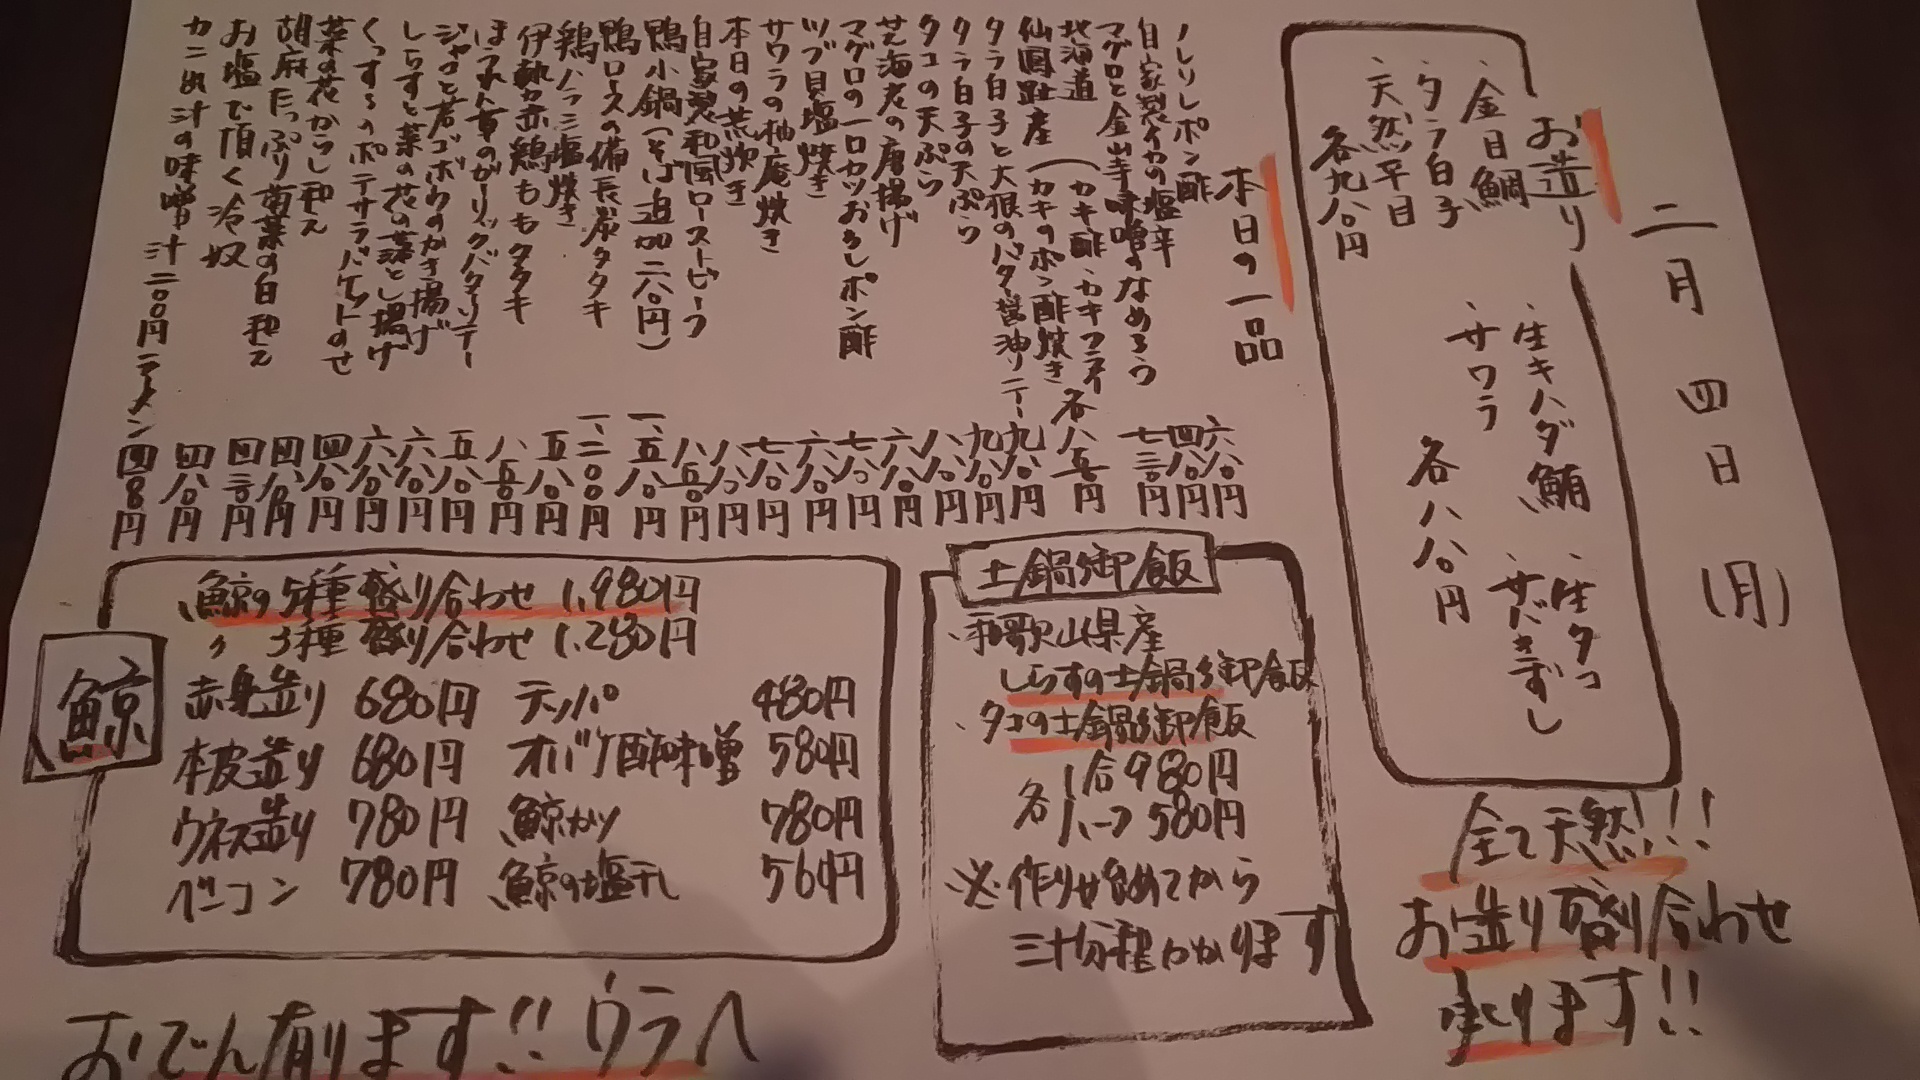 二月四日(月)
お造り
・金目鯛
・タラ白子
・天然平目
各九八〇円
・生キハダ鮪
・サワラ
・生タコ
・サバきずし
各八八〇円
全て天然!!!
お造り盛り合わせ
承ります!!
本日の一品
ノレソレポン酢 六八〇円
自家製イカの塩辛 四八〇円
マグロと金山寺味噌のなめろう 七三〇円
北海道
仙鳳趾産
(カキ酢・カキフライ
(カキのポン酢焼き 各八五〇円
タラ白子と大根のバター醤油ソテー 九八〇円
タラ白子の天ぷら 九八〇円
タコの天ぷら
芝海老の唐揚げ 六八〇円
マグロの一口カツおろしポン酢
ツブ貝塩焼き 六八〇円
サワラの柚庵焼き
本日の荒炊き
自家製和風ローストビーフ 八五〇円
鴨小鍋(そば追加二八〇円) 一、五八〇円
鴨ロースの備長炭タタキ 一、二〇〇円
鶏ハラミ塩焼き 五八〇円
伊勢赤鶏ももタタキ 八五〇円
ほうれん草のガーリックバターソテー 五八〇円
ジャコと若ゴボウのかき揚げ 六八〇円
しらすと菜の花の落とし揚げ 六八〇円
くっすんのポテサラバケットのせ
菜の花からし和え 四八〇円
胡麻たっぷり菊菜の白和え
お塩で頂く冷奴 四三〇円
カニ出汁の味噌汁二〇〇円ラーメン
土鍋御飯
・和歌山県産
しらすの土鍋御飯
・タコの土鍋御飯
各
1合980円
ハーフ580円
※作り始めてから
三十分程かかります
鯨
・鯨の5種盛り合わせ 1,980円
〃 3種盛り合わせ 1,280円
赤身造り 680円 テッパ 480円
本皮造り 680円 オバケ酢味噌 580円
ウネス造り 780円 鯨カツ 780円
ベーコン 780円 鯨の塩干し 564円
おでん有ります!! ウラへ